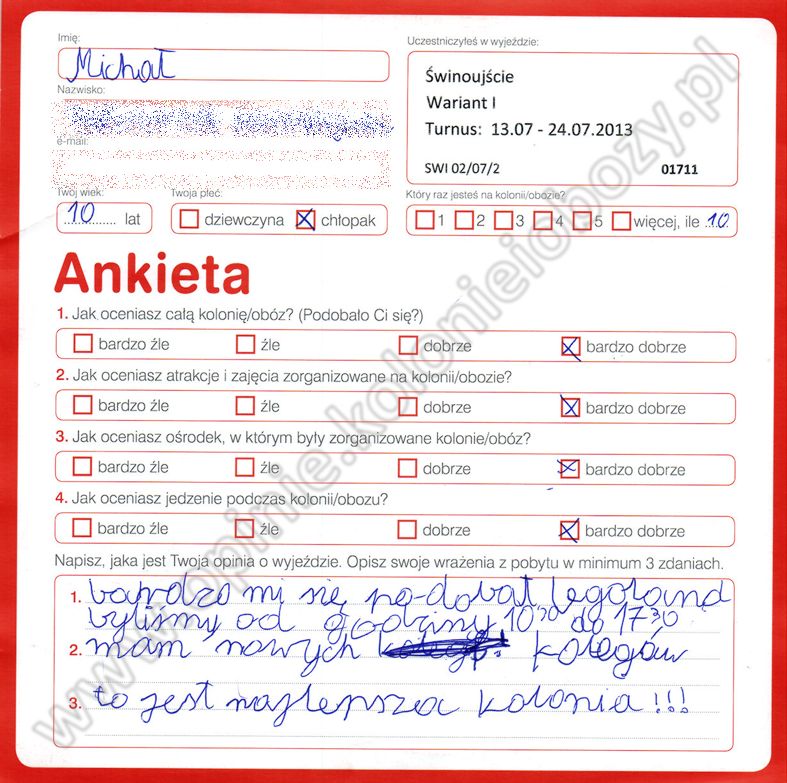 Imię:
Uczestniczyłeś w wyjeździe:
Michał
Świnoujście
Wariant I
Turnus: 13.07 - 24.07.2013
SWI 02/07/2 01711
Nazwisko:
e-mail:
Twój wiek:
Twoja płeć:
Który raz jesteś na kolonii/obozie?
10 lat
dziewczyna chłopak
1 2 3 4 5 więcej, ile 10
Ankieta
1. Jak oceniasz całą kolonię/obóz? (Podobało Ci się?)
bardzo źle źle dobrze bardzo dobrze
2. Jak oceniasz atrakcje i zajęcia zorganizowane na kolonii/obozie?
bardzo źle źle dobrze bardzo dobrze
3. Jak oceniasz ośrodek, w którym były zorganizowane kolonie/obóz?
bardzo źle źle dobrze bardzo dobrze
4. Jak oceniasz jedzenie podczas kolonii/obozu?
bardzo źle źle dobrze bardzo dobrze
Napisz, jaka jest Twoja opinia o wyjeździe. Opisz swoje wrażenia z pobytu w minimum 3 zdaniach.
1. bardzo mi się po-dobał legoland
byliśmy od godziny 10³⁰ do 17³⁰
2. mam nowych kolegów
3. to jest najlepsza kolonia!!!
www.opinie.kolonieiobozy.pl